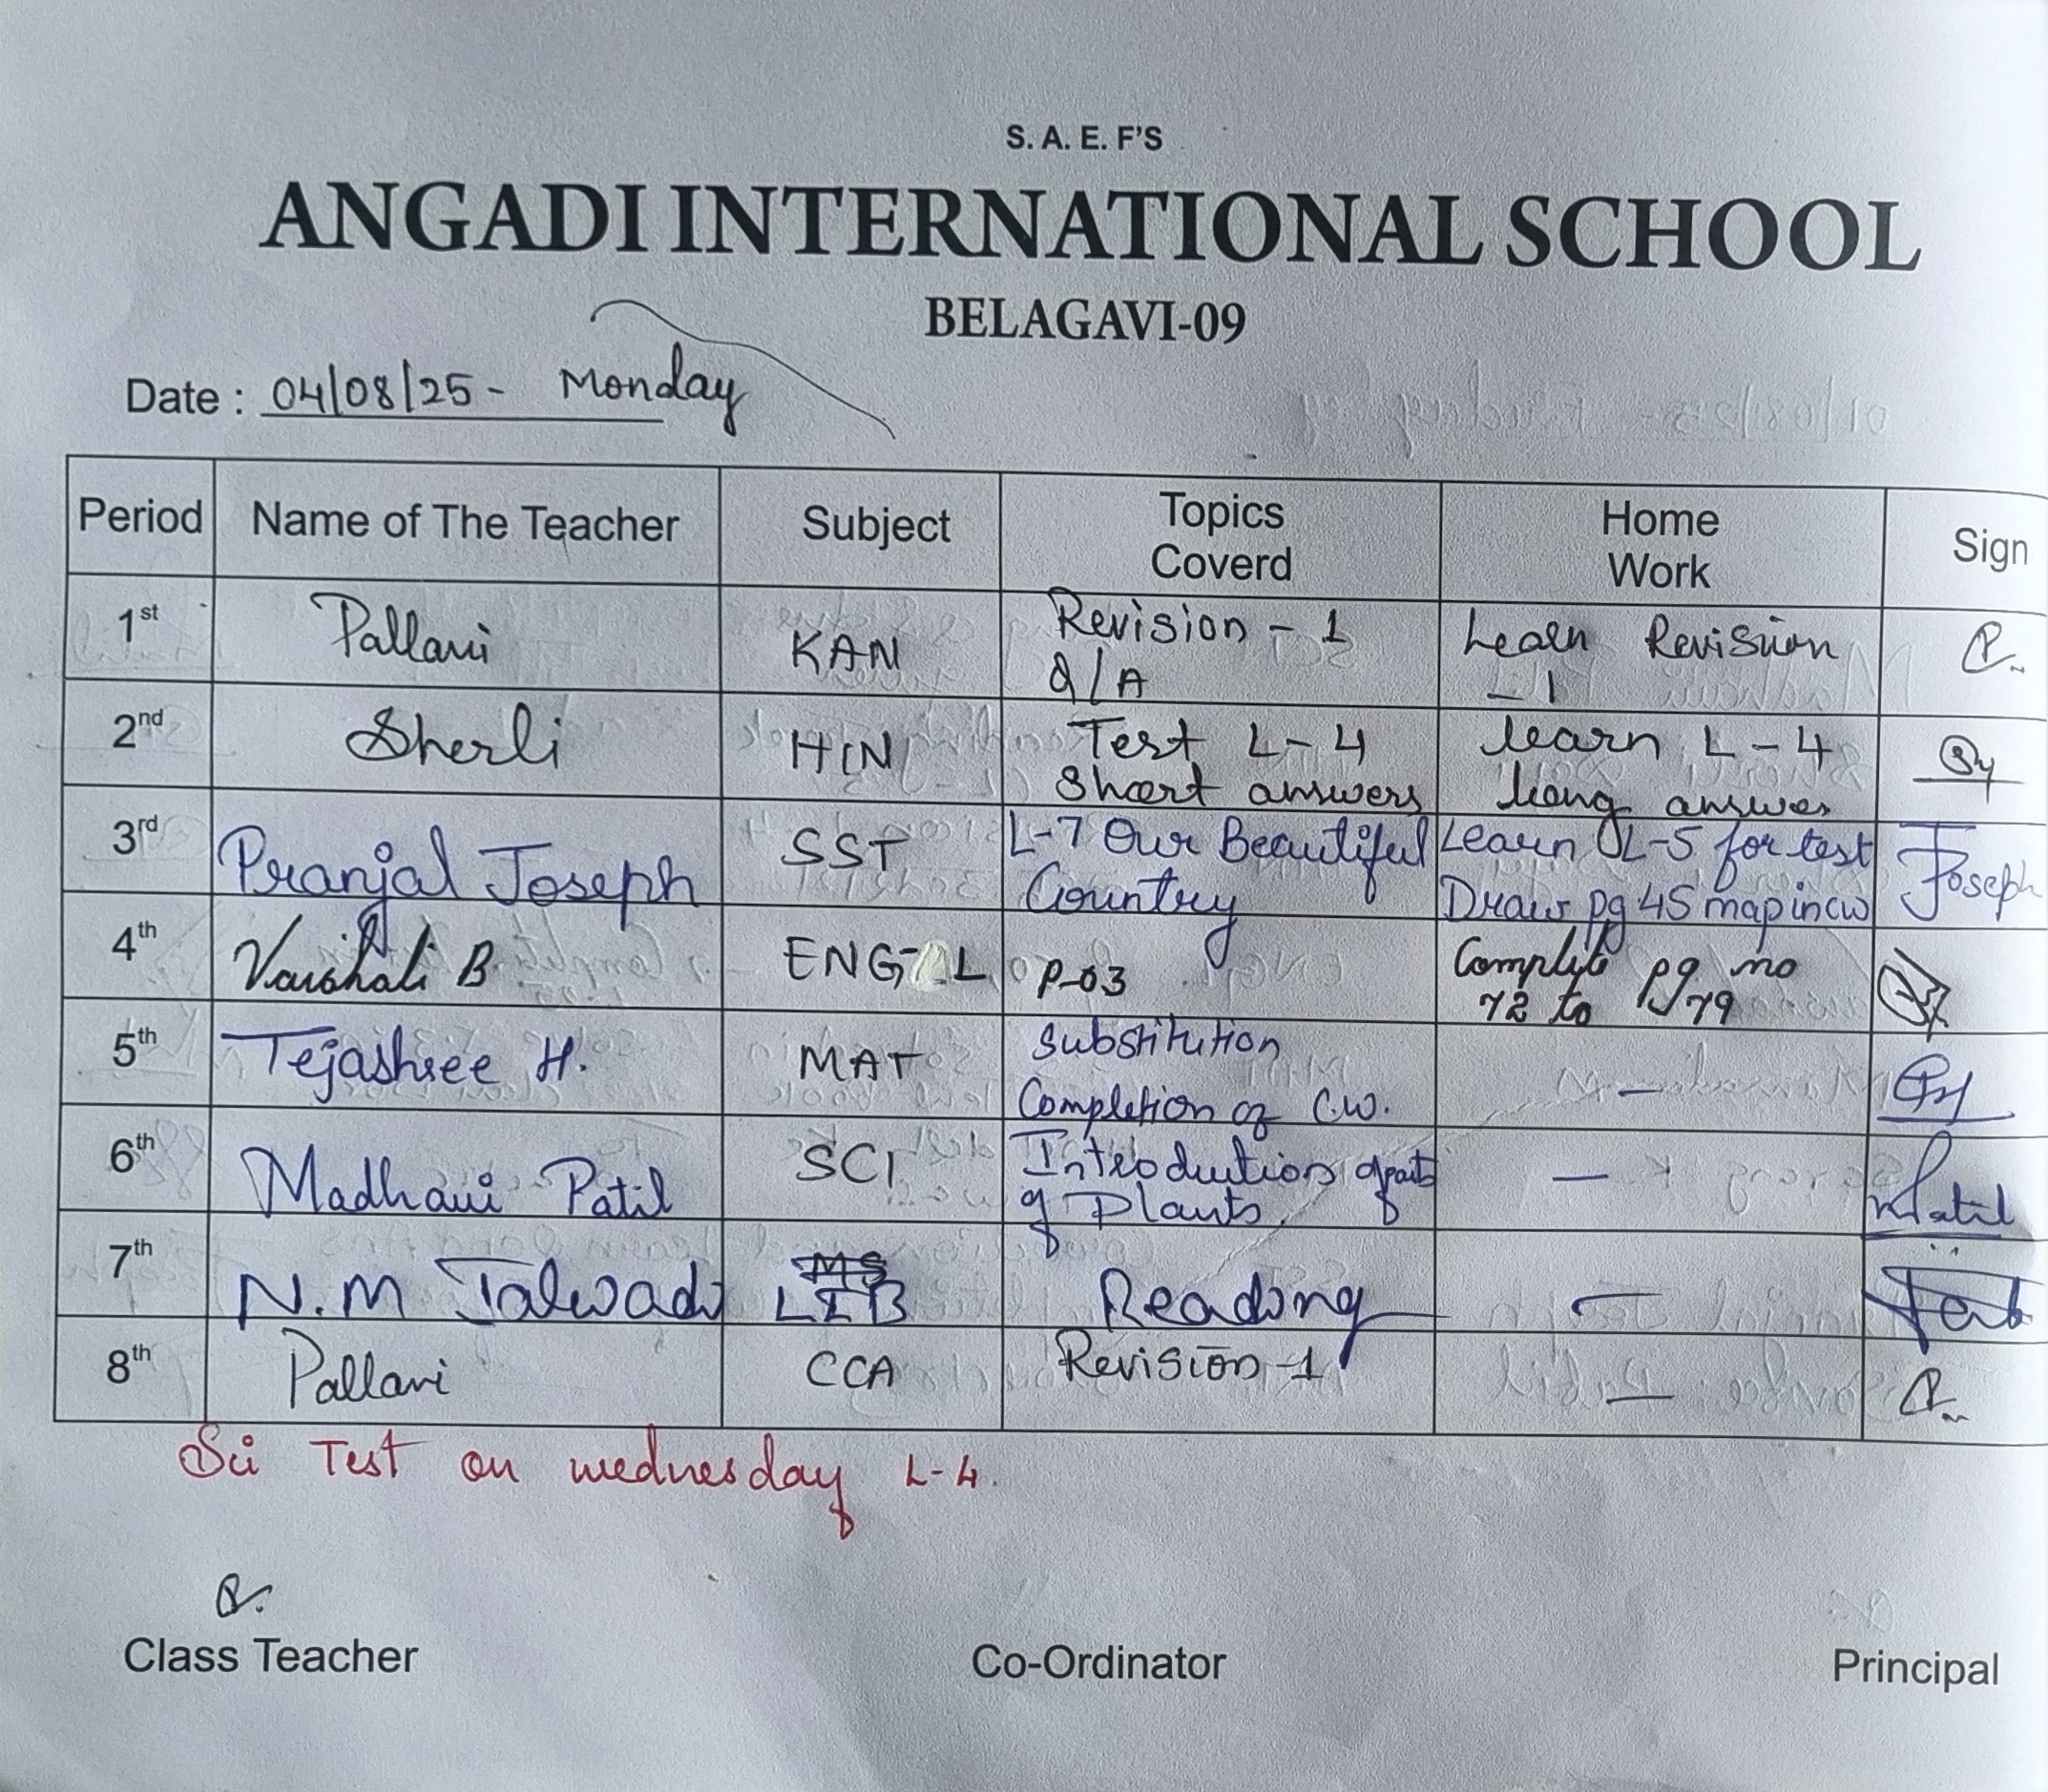 S. A. E. F'S
ANGADI INTERNATIONAL SCHOOL
BELAGAVI-09
Date : 04/08/25 - Monday
Period Name of The Teacher Subject Topics Coverd Home Work Sign
1st Pallavi KAN Revision - 1 Q/A Learn Revision - 1
2nd Sherli HIN Test L-4 Short answers learn L-4 long answer
3rd Pranjal Joseph SST L-7 Our Beautiful Country Learn L-5 for test Draw pg 45 map in cw Joseph
4th Vaishali B ENG-L P-03 Complete pg no 72 to 79
5th Tejashree H. MAT Substitution Completion of C.W. -
6th Madhavi Patil SCI Introdution of parts of Plants. - Patil
7th N.M Jalwadi MS LIB Reading -
8th Pallavi CCA Revision -1 -
Sci Test on wednesday L-4.
Class Teacher Co-Ordinator Principal